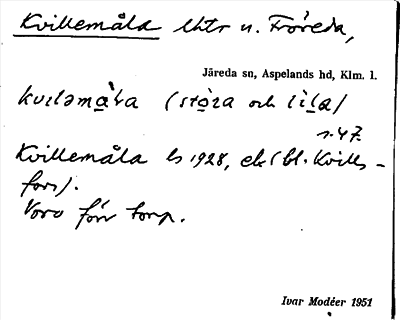 Kvillemåla lhtr u. Fröreda,
Järeda sn, Aspelands hd, Klm. l.
(stòra och lìla)
s. 47.
Kvillemåla ls 1928, ek (bl. Kvills-
fors).
Voro förr torp.
Ivar Modéer 1951